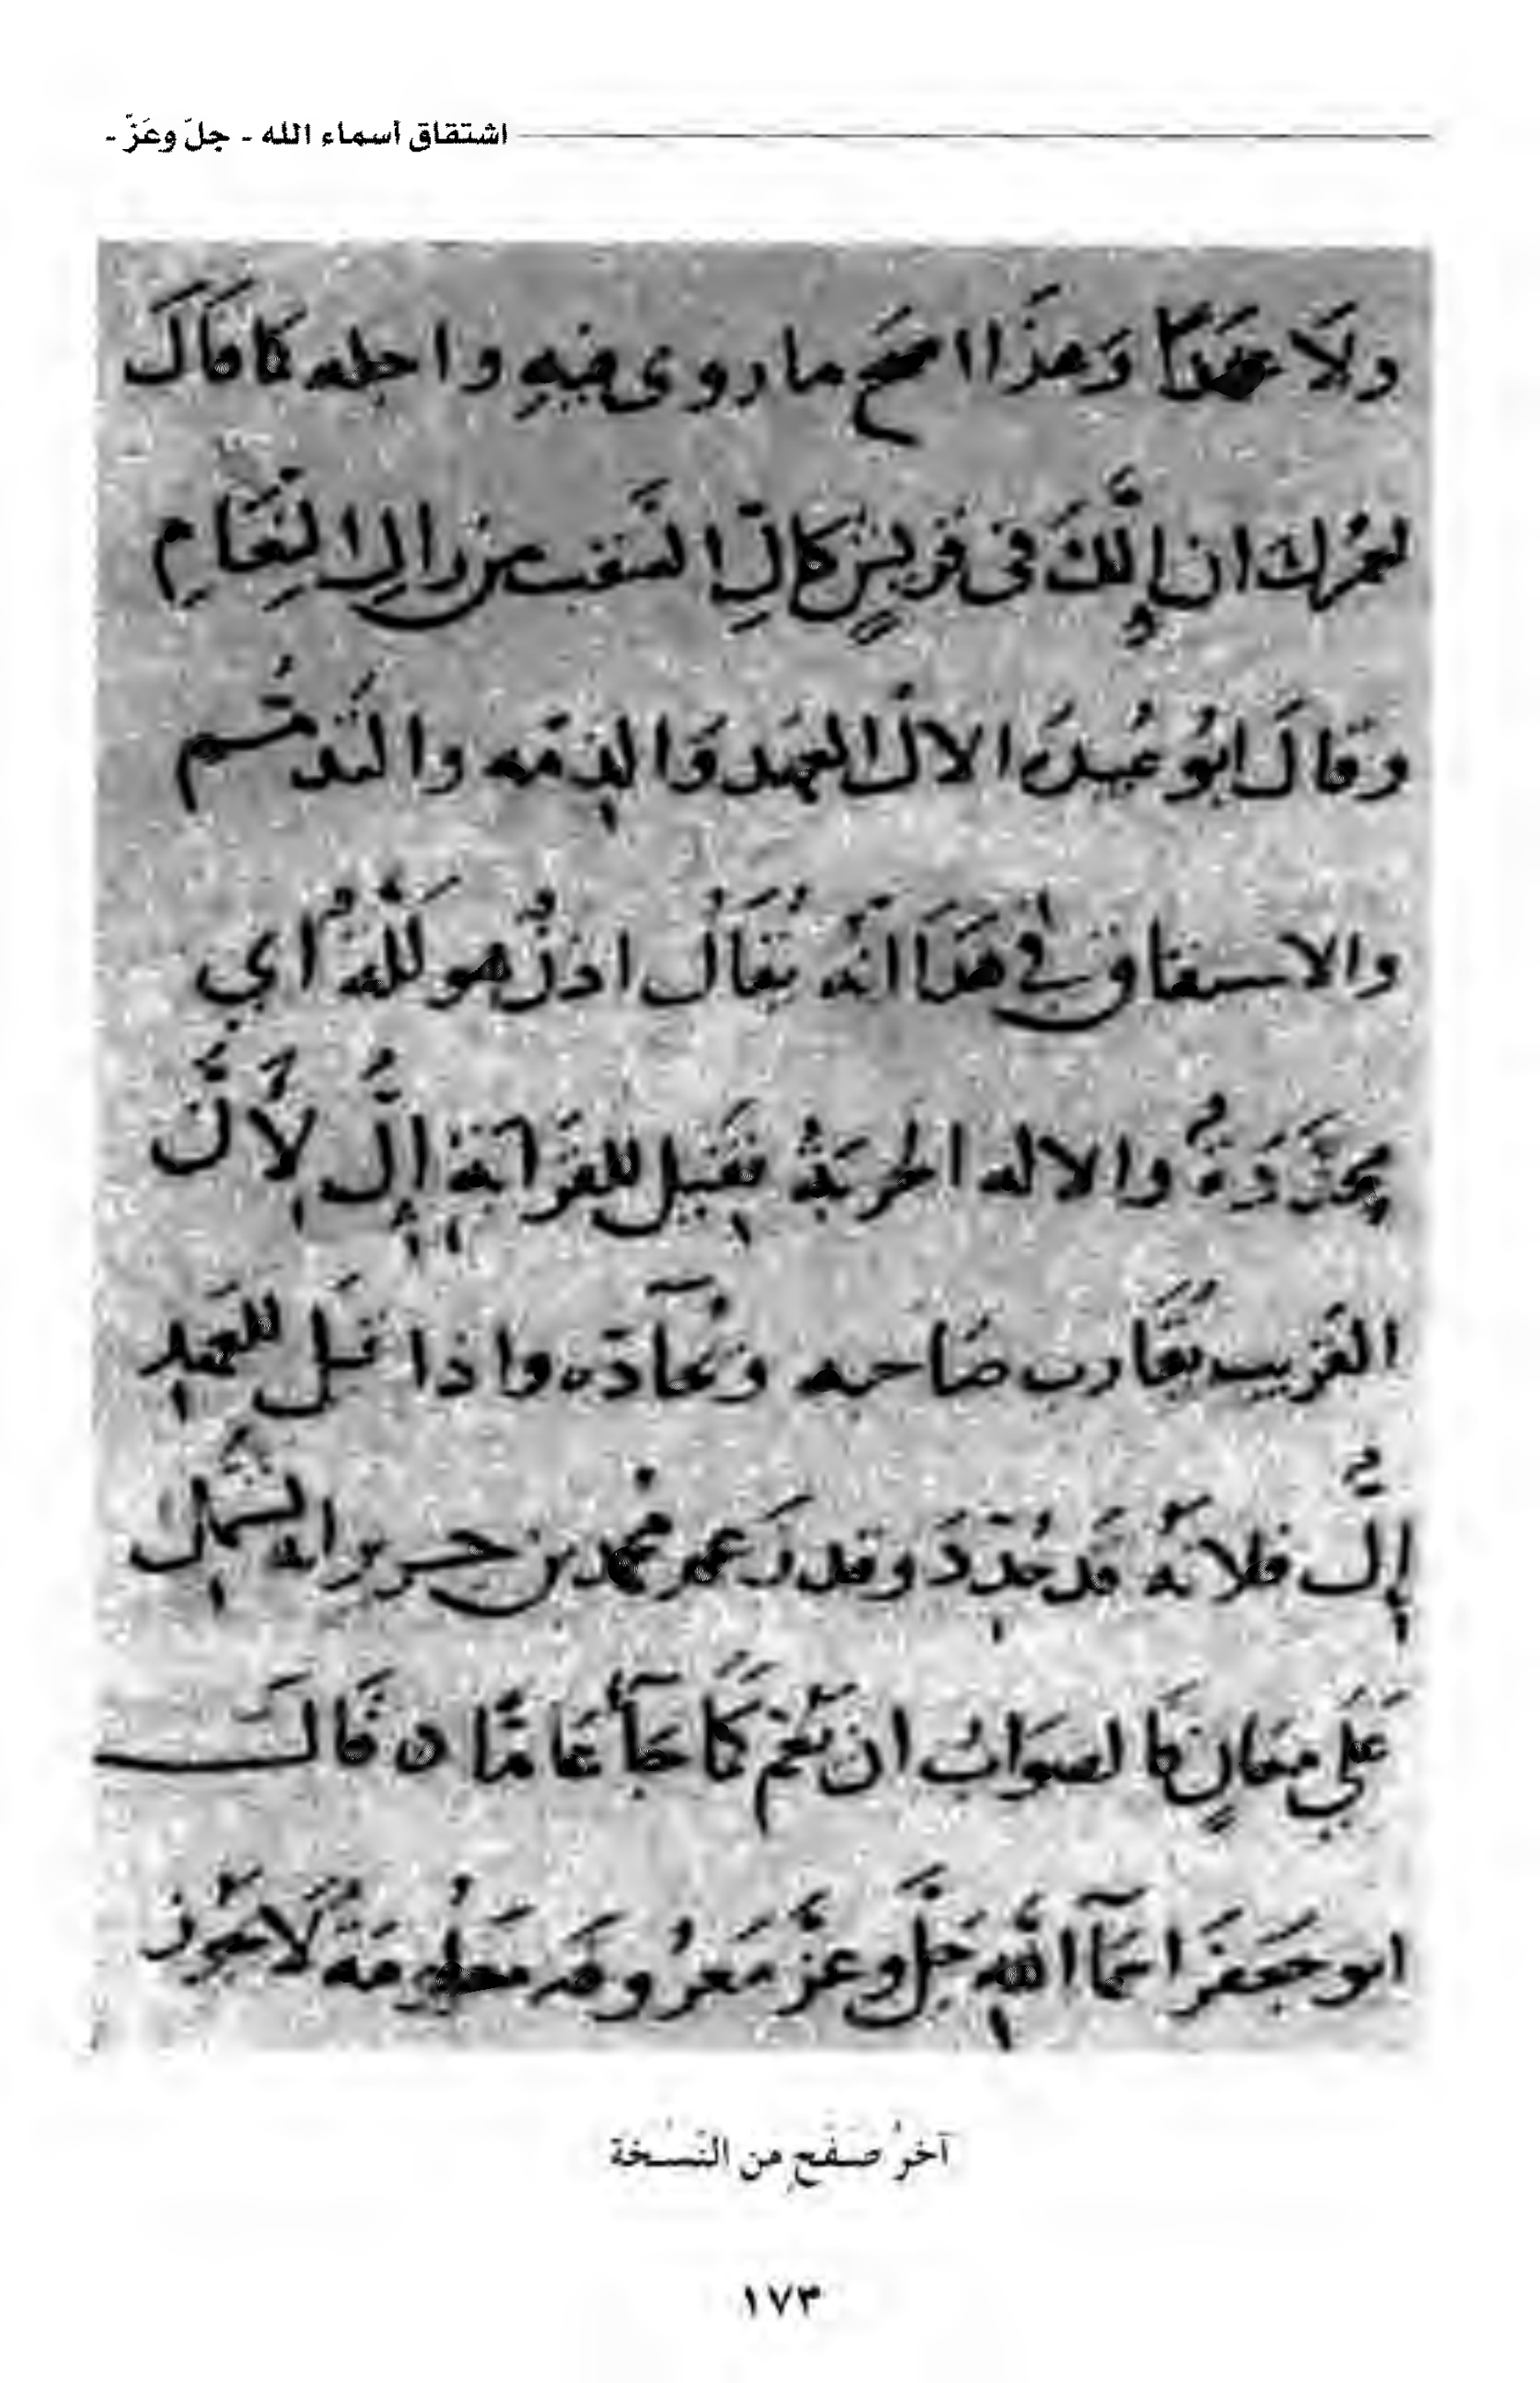 اشتقاق أسماء الله - جلّ وعَزّ -
ولَا عهدًا وَهذَا اصح ما روى فيهِ واجله كما قالَ
لعمرك ان إلَّكَ فى قريشٍ كالِّ السقب من رالِ النعَامِ
وقالَ ابُو عُبيدهَ الالّ العهد وَالذمّه والتذمُّم
والاستقاق في هَذَا انّه يُقَالُ اذنٌ مولَّلَةٌ اي
محدَّدَةٌ والاله الحربَةُ فقِيل للقرَابَةِ إلٌّ لِأَنَّ
القريب يُقَارب صَاحبه ويُحَآدّه واذا قيل للعهدِ
إلٌّ فلانّه قد حُدِّدَ وقد زَعم محمد بن جرير انه يشتمل
عَلَي معَانٍ فالصوابُ ان يَعُم كمَا جَآءَ عَامًّا ه قَالَ
ابو جَعفَر اسمَآ اللهِ جَلَّ وعَزّ مَعرُوفه مَعلُومَةٌ لَا يجوز
آخرُ صَفَحٍ مِن النّسْخة
١٧٣